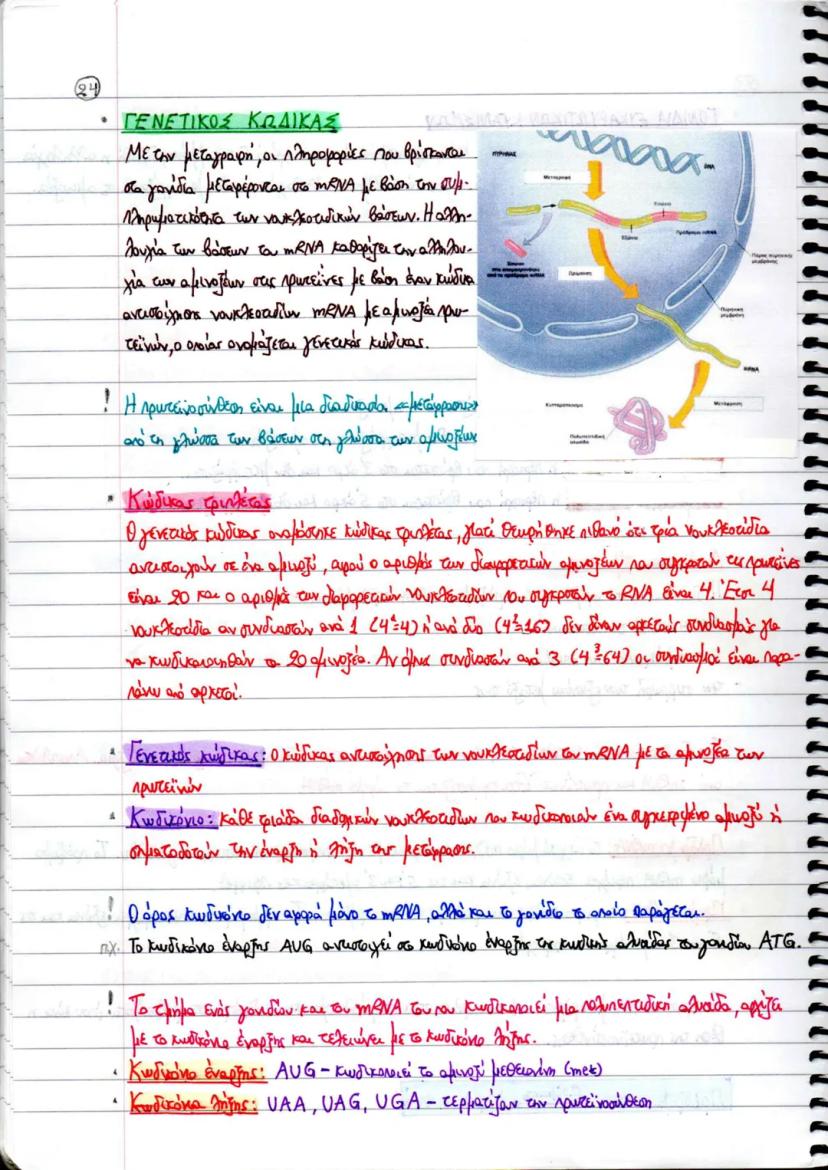 24
• ΓΕΝΕΤΙΚΟΣ ΚΩΔΙΚΑΣ
Με την μεταγραφή, οι πληροφορίες που βρίσκονται
στα γονίδια μεταφέρονται στο mRNA με βάση την συμ-
πληρωματικότητα των νουκλεοτιδικών βάσεων. Η αλλη-
λουχία των βάσεων του mRNA καθορίζει την αλληλου-
χία των αμινοξέων στις πρωτεΐνες με βάση έναν κώδικα
αντιστοίχισης νουκλεοτιδίων mRNA με αμινοξέα πρω-
τεϊνών, ο οποίος ονομάζεται γενετικός κώδικας.
ΠΥΡΗΝΑΣ
DNA
Μεταγραφή
Εσώνιο
Εξώνιο
Πρόδρομο mRNA
Εσώνιο
που απομακρύνθηκε
από το πρόδρομο mRNA
Ωρίμανση
Πόρος πυρηνικής
μεμβράνης
Πυρηνική
μεμβράνη
mRNA
Κυτταρόπλασμα
Μετάφραση
Πολυπεπτιδική
αλυσίδα
! Η πρωτεϊνοσύνθεση είναι μια διαδικασία «μετάφρασης»
από τη γλώσσα των βάσεων στη γλώσσα των αμινοξέων
• Κώδικας τριπλέτας
Ο γενετικός κώδικας ονομάστηκε κώδικας τριπλέτας, γιατί θεωρήθηκε πιθανό ότι τρία νουκλεοτίδια
αντιστοιχούν σε ένα αμινοξύ, αφού ο αριθμός των διαφορετικών αμινοξέων που συγκροτούν τις πρωτεΐνες
είναι 20 και ο αριθμός των διαφορετικών νουκλεοτιδίων που συγκροτούν το RNA είναι 4. Έτσι 4
νουκλεοτίδια αν συνδυαστούν ανά 1 (4¹=4) ή ανά δύο (4²=16) δεν δίνουν αρκετούς συνδυασμούς για
να κωδικοποιηθούν τα 20 αμινοξέα. Αν όμως συνδυαστούν ανά 3 (4³=64) οι συνδυασμοί είναι παρα-
πάνω από αρκετοί.
• Γενετικός κώδικας: Ο κώδικας αντιστοίχισης των νουκλεοτιδίων του mRNA με τα αμινοξέα των
πρωτεϊνών
• Κωδικόνιο: κάθε τριάδα διαδοχικών νουκλεοτιδίων που κωδικοποιούν ένα συγκεκριμένο αμινοξύ ή
σηματοδοτούν την έναρξη ή λήξη της μετάφρασης.
! Ο όρος κωδικόνιο δεν αφορά μόνο το mRNA, αλλά και το γονίδιο το οποίο παράγεται.
π.χ. Το κωδικόνιο έναρξης AUG αντιστοιχεί στο κωδικόνιο έναρξης της κωδικής αλυσίδας του γονιδίου ATG.
! Το τμήμα ενός γονιδίου και του mRNA του που κωδικοποιεί μια πολυπεπτιδική αλυσίδα, αρχίζει
με το κωδικόνιο έναρξης και τελειώνει με το κωδικόνιο λήξης.
• Κωδικόνιο έναρξης: AUG – κωδικοποιεί το αμινοξύ μεθειονίνη (met)
• Κωδικόνια λήξης: UAA, UAG, UGA – τερματίζουν την πρωτεϊνοσύνθεση